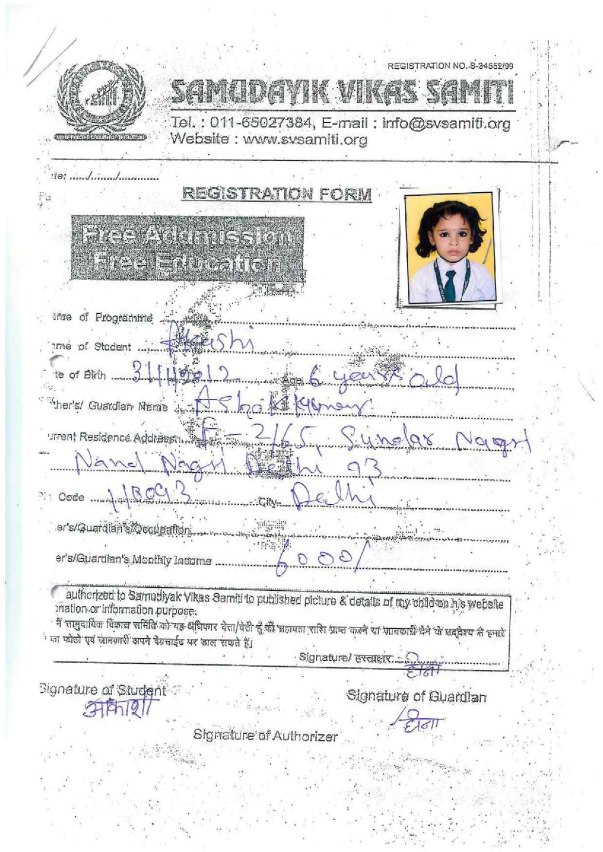 REGISTRATION NO.-S-34552/99
SAMUDAYIK VIKAS SAMITI
Tel. : 011-65027384, E-mail : info@svsamiti.org
Website : www.svsamiti.org
te: ...../....../.............
REGISTRATION FORM
Free Addmission
Free Education
me of Programme
me of Student Akashi
te of Birth 31/1/2012 Age 6 years old
ther's/ Guardian Name Ashok Kumar
urrent Residence Address F-2/65, Sundar Nagri
Nand Nagri Delhi 93
Code 110093 City Delhi
er's/Guardian's Occupation
er's/Guardian's Monthly Income 6000/
authorized to Samudiyak Vikas Samiti to published picture & details of my child on his website
onation or information purpose.
मैं सामुदायिक विकास समिति को यह अधिकार देता/देती हूँ की सहायता राशि प्राप्त करने या जानकारी देने के उद्देश्य से हमारे
का फोटो एवं जानकारी अपने वेबसाईट पर डाल सकते हैं।
Signature/ हस्ताक्षर
Signature of Student Signature of Guardian
आकाशी
Signature of Authorizer